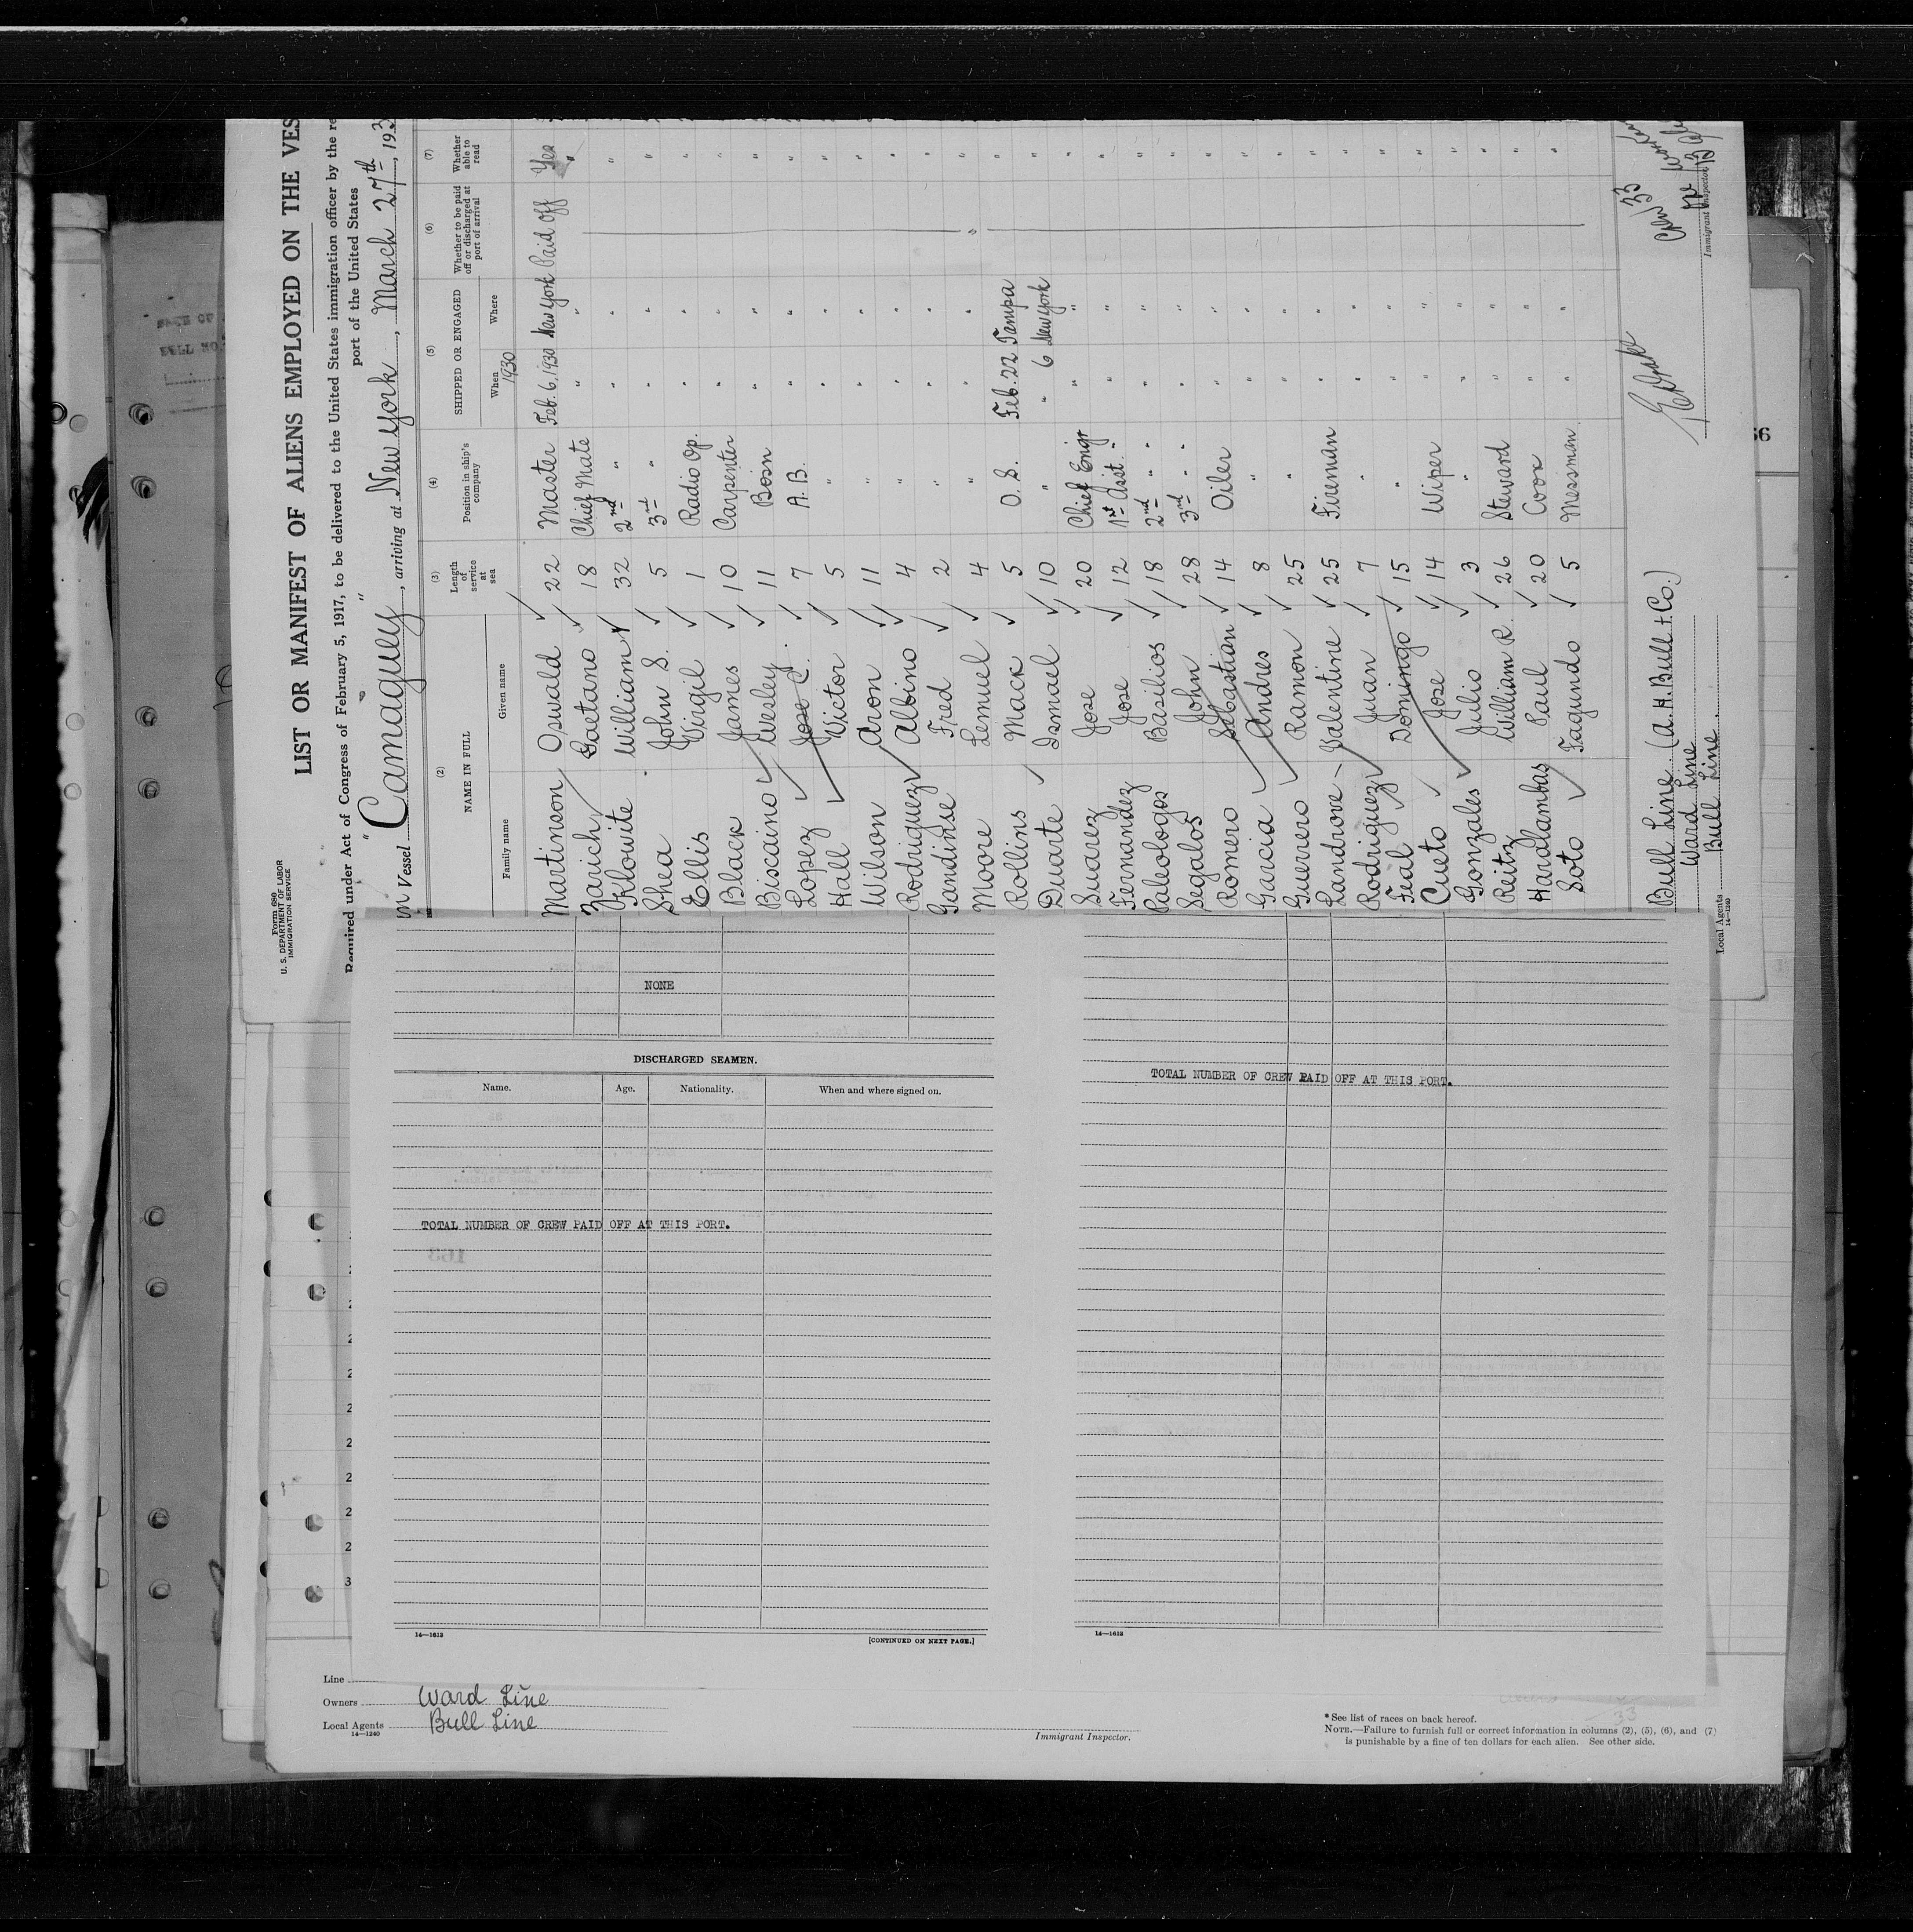 Form 689
U. S. DEPARTMENT OF LABOR
IMMIGRATION SERVICE
LIST OR MANIFEST OF ALIENS EMPLOYED ON THE VES
Required under Act of Congress of February 5, 1917, to be delivered to the United States immigration officer by the re
port of the United States
Vessel " Camaguey " , arriving at New York , March 27th , 193
(2) NAME IN FULL
Family name Given name
(3) Length of service at sea
(4) Position in ship's company
(5) SHIPPED OR ENGAGED
When Where
1930
(6) Whether to be paid off or discharged at port of arrival
(7) Whether able to read
Martinson Oswald 22 Master Feb. 6, 1930 New York Paid Off Yes
Zarich Gaetano 18 Chief Mate " " "
Klowite William 32 2nd " " " "
Shea John S. 5 3rd " " " "
Ellis Virgil 1 Radio Op. " " "
Black James 10 Carpenter " " "
Biscaino Wesley 11 Bosn " " "
Lopez Jose C. 7 A. B. " " "
Hall Victor 5 " " " "
Wilson Aron 11 " " " "
Rodriguez Albino 4 " " " "
Fred 2 " " " "
Moore Lemuel 4 " " " "
Rollins Mack 5 O. S. Feb. 22 Tampa "
Duarte Ismael 10 " " 6 New York "
Suarez Jose 20 Chief Engr " " "
Fernandez Jose 12 1st Asst. " " "
Paleologos Basilios 18 2nd " " " " "
Segalos John 28 3rd " " " " "
Romero Sebastian 14 Oiler " " "
Garcia Andres 8 " " " "
Guerrero Ramon 25 " " " "
Landrove Valentine 25 Fireman " " "
Rodriguez Juan 7 " " " "
Feal Domingo 15 " " " "
Cueto Jose 14 Wiper " " "
Gonzales Julio 3 " " " "
Reitz William R. 26 Steward " " "
Haralambas Paul 20 Cook " " "
Soto Fagundo 5 Messman " " "
Bull Line (A. H. Bull & Co.)
Ward Line
Local Agents Bull Line
14—1240
33
Immigrant Inspector
56
NONE
DISCHARGED SEAMEN.
Name. Age. Nationality. When and where signed on.
TOTAL NUMBER OF CREW PAID OFF AT THIS PORT.
14—1613
[CONTINUED ON NEXT PAGE.]
TOTAL NUMBER OF CREW PAID OFF AT THIS PORT.
14—1613
2
2
2
2
2
2
3
Line
Owners Ward Line
Local Agents Bull Line
14—1240
Immigrant Inspector.
33
* See list of races on back hereof.
NOTE.—Failure to furnish full or correct information in columns (2), (5), (6), and (7)
is punishable by a fine of ten dollars for each alien. See other side.